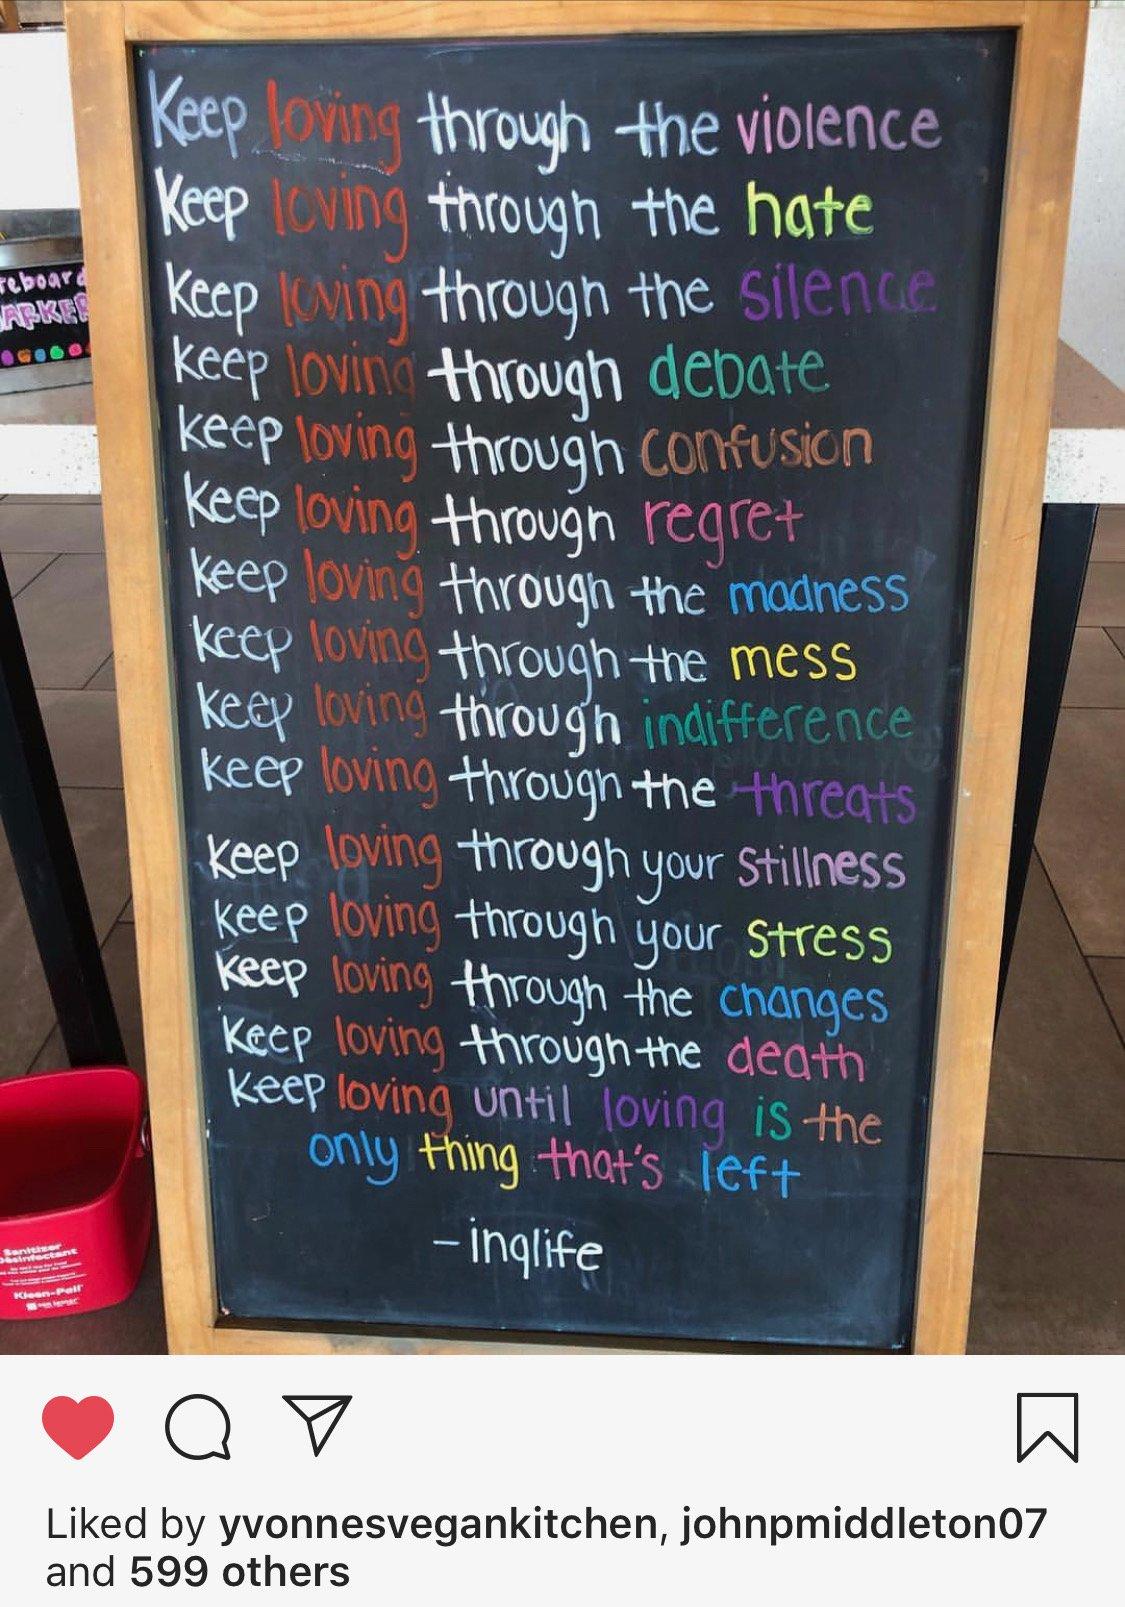 Keep loving through the violence
Keep loving through the hate
Keep loving through the silence
keep loving through debate
keep loving through confusion
keep loving through regret
keep loving through the madness
keep loving through the mess
keep loving through indifference
keep loving through the threats
keep loving through your stillness
keep loving through your stress
keep loving through the changes
keep loving through the death
keep loving until loving is the
only thing that's left
- inqlife
Sanitizer
Kleen-Pail
Liked by yvonnesvegankitchen, johnpmiddleton07
and 599 others